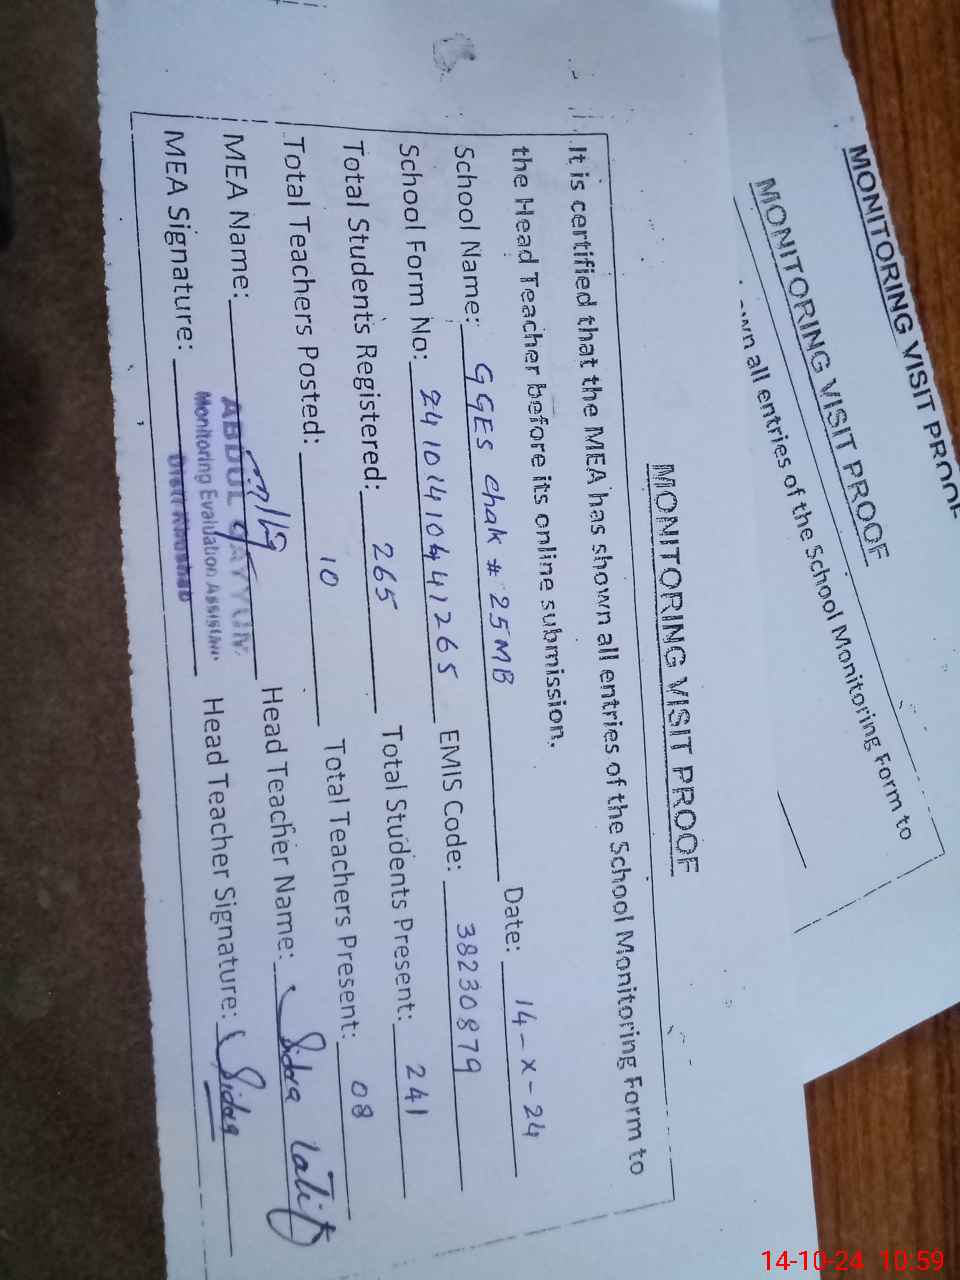 MONITORING VISIT PROOF
MONITORING VISIT PROOF
own all entries of the School Monitoring Form to
MONITORING VISIT PROOF
It is certified that the MEA has shown all entries of the School Monitoring Form to
the Head Teacher before its online submission.
School Name: GGES Chak # 25MB Date: 14-X-24
School Form No: EMIS Code: 38230879
Total Students Registered: 265 Total Students Present: 241
Total Teachers Posted: 10 Total Teachers Present: 08
MEA Name: ABDUL QAYYUM Head Teacher Name: Sidra Latif
Monitoring Evaluation Assistant
MEA Signature: Distt Khushab Head Teacher Signature: Sidra
14-10-24 10:59